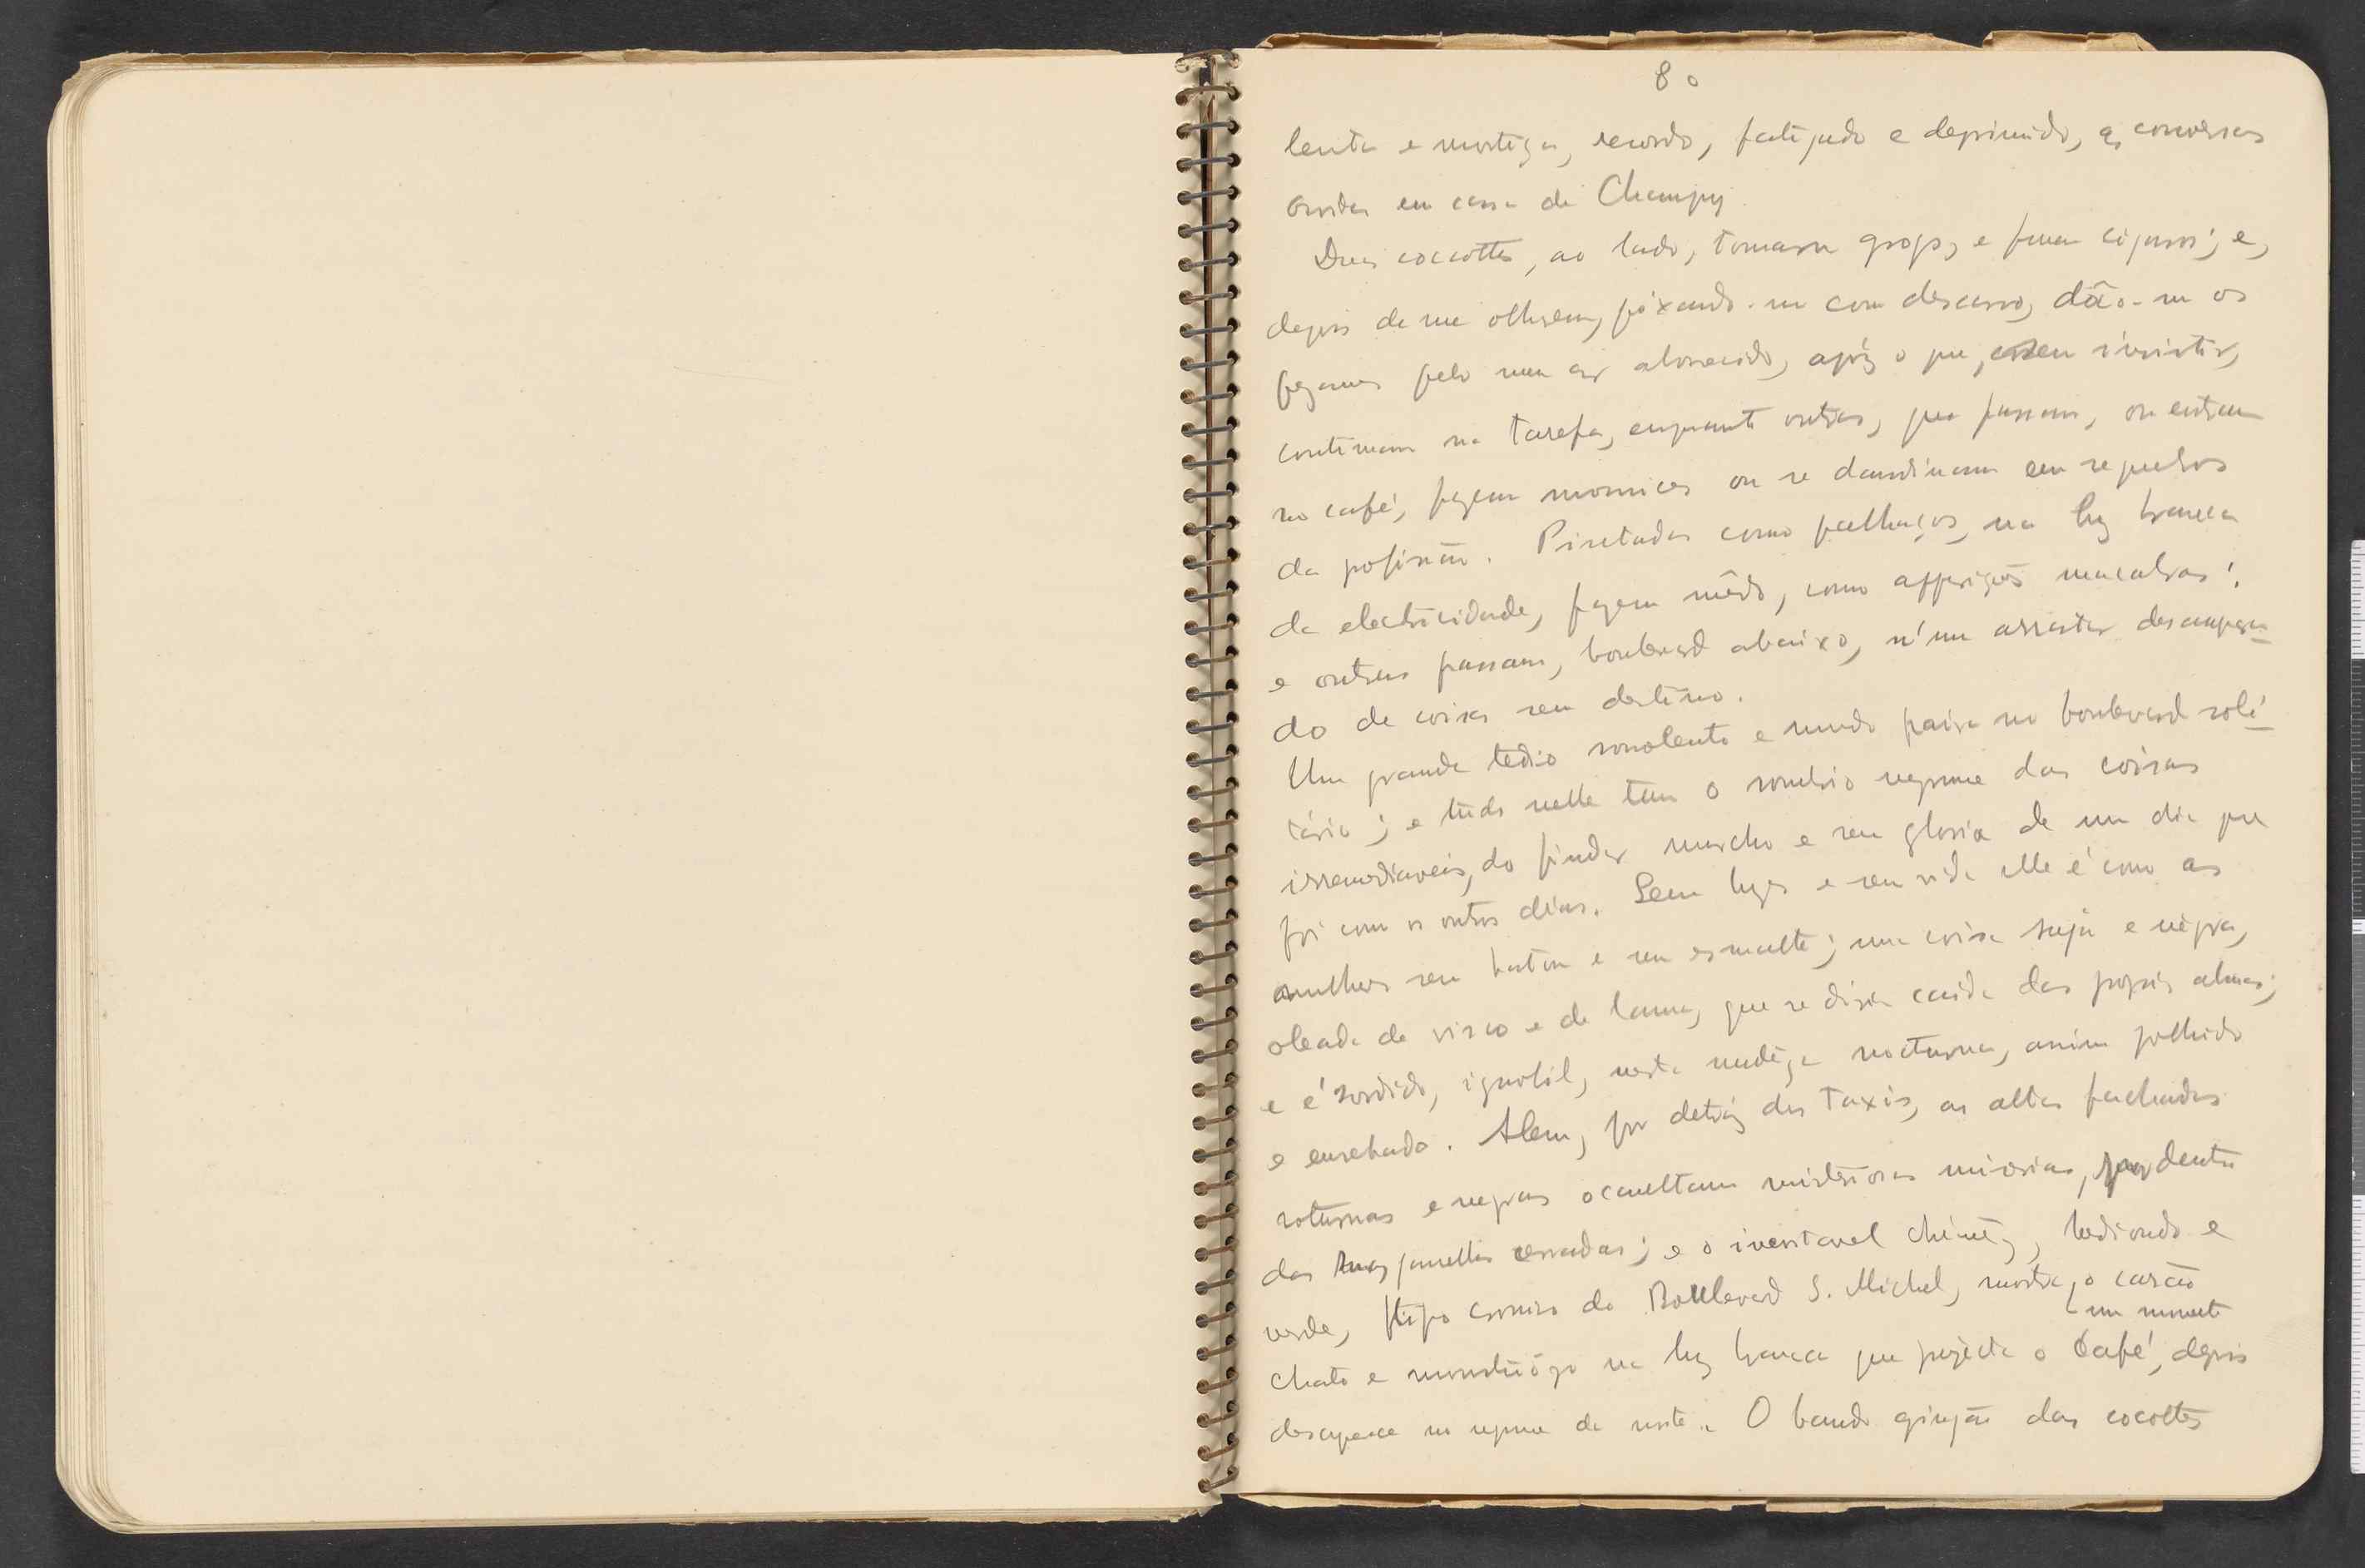 80
lenta e mortiça, recordo, fatigado e deprimido, as conversas
ouvidas em casa de Champy
Duas coccottes, ao lado, tomaram grogs, e fumam cigarros; e,
depois de me olharem, fixando-me com descaro, dão-me os
pezames pelo meu ar aborrecido, após o que, sem insistir,
continuam na tarefa, enquanto outras, que passam, ou entram
no café, fazem momices ou se dandinam em requebros
da profissão. Pintadas como palhaços, na luz branca
da electricidade, fazem mêdo, como apparições macabras;
e outras passam, boulevard abaixo, n'um arrastar desampara-
do de coisas sem destino.
Um grande tedio sonolento e mudo paira no boulevard soli-
tário; e tudo nelle tem o sombrio negrume das coisas
irremediaveis, do findar murcho e sem gloria de um dia que
foi como os outros dias. Sem luzes e sem vida elle é como as
mulheres sem baton e sem esmalte; uma coisa suja e negra,
oleada de visco e de lama, que se diria caida das proprias almas;
e é sordido, ignobil, nesta nudêza nocturna, assim
e ensebado. Alem, por detráz dos taxis, as altas fachadas
soturnas e negras occultam misteriosas miserias, por dentro
das suas janellas cerradas; e o inevitavel chinêz, hediondo e
verde, tipo cronico do Boulevard S. Michel, mostra, o carão
um momento
chato e monstruôso na luz branca que projecta o Café, depois
desaparece no negrume da noite. O bando das cocottes